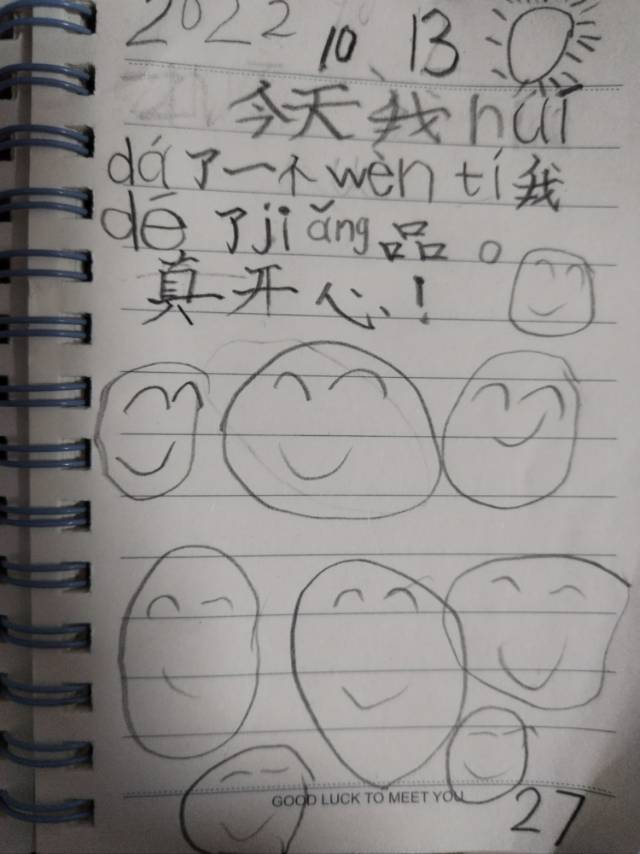 2022 10、13
今天我huí
dá了一个wèn tí我
dé了jiǎng品。
真开心！
GOOD LUCK TO MEET YOU
27